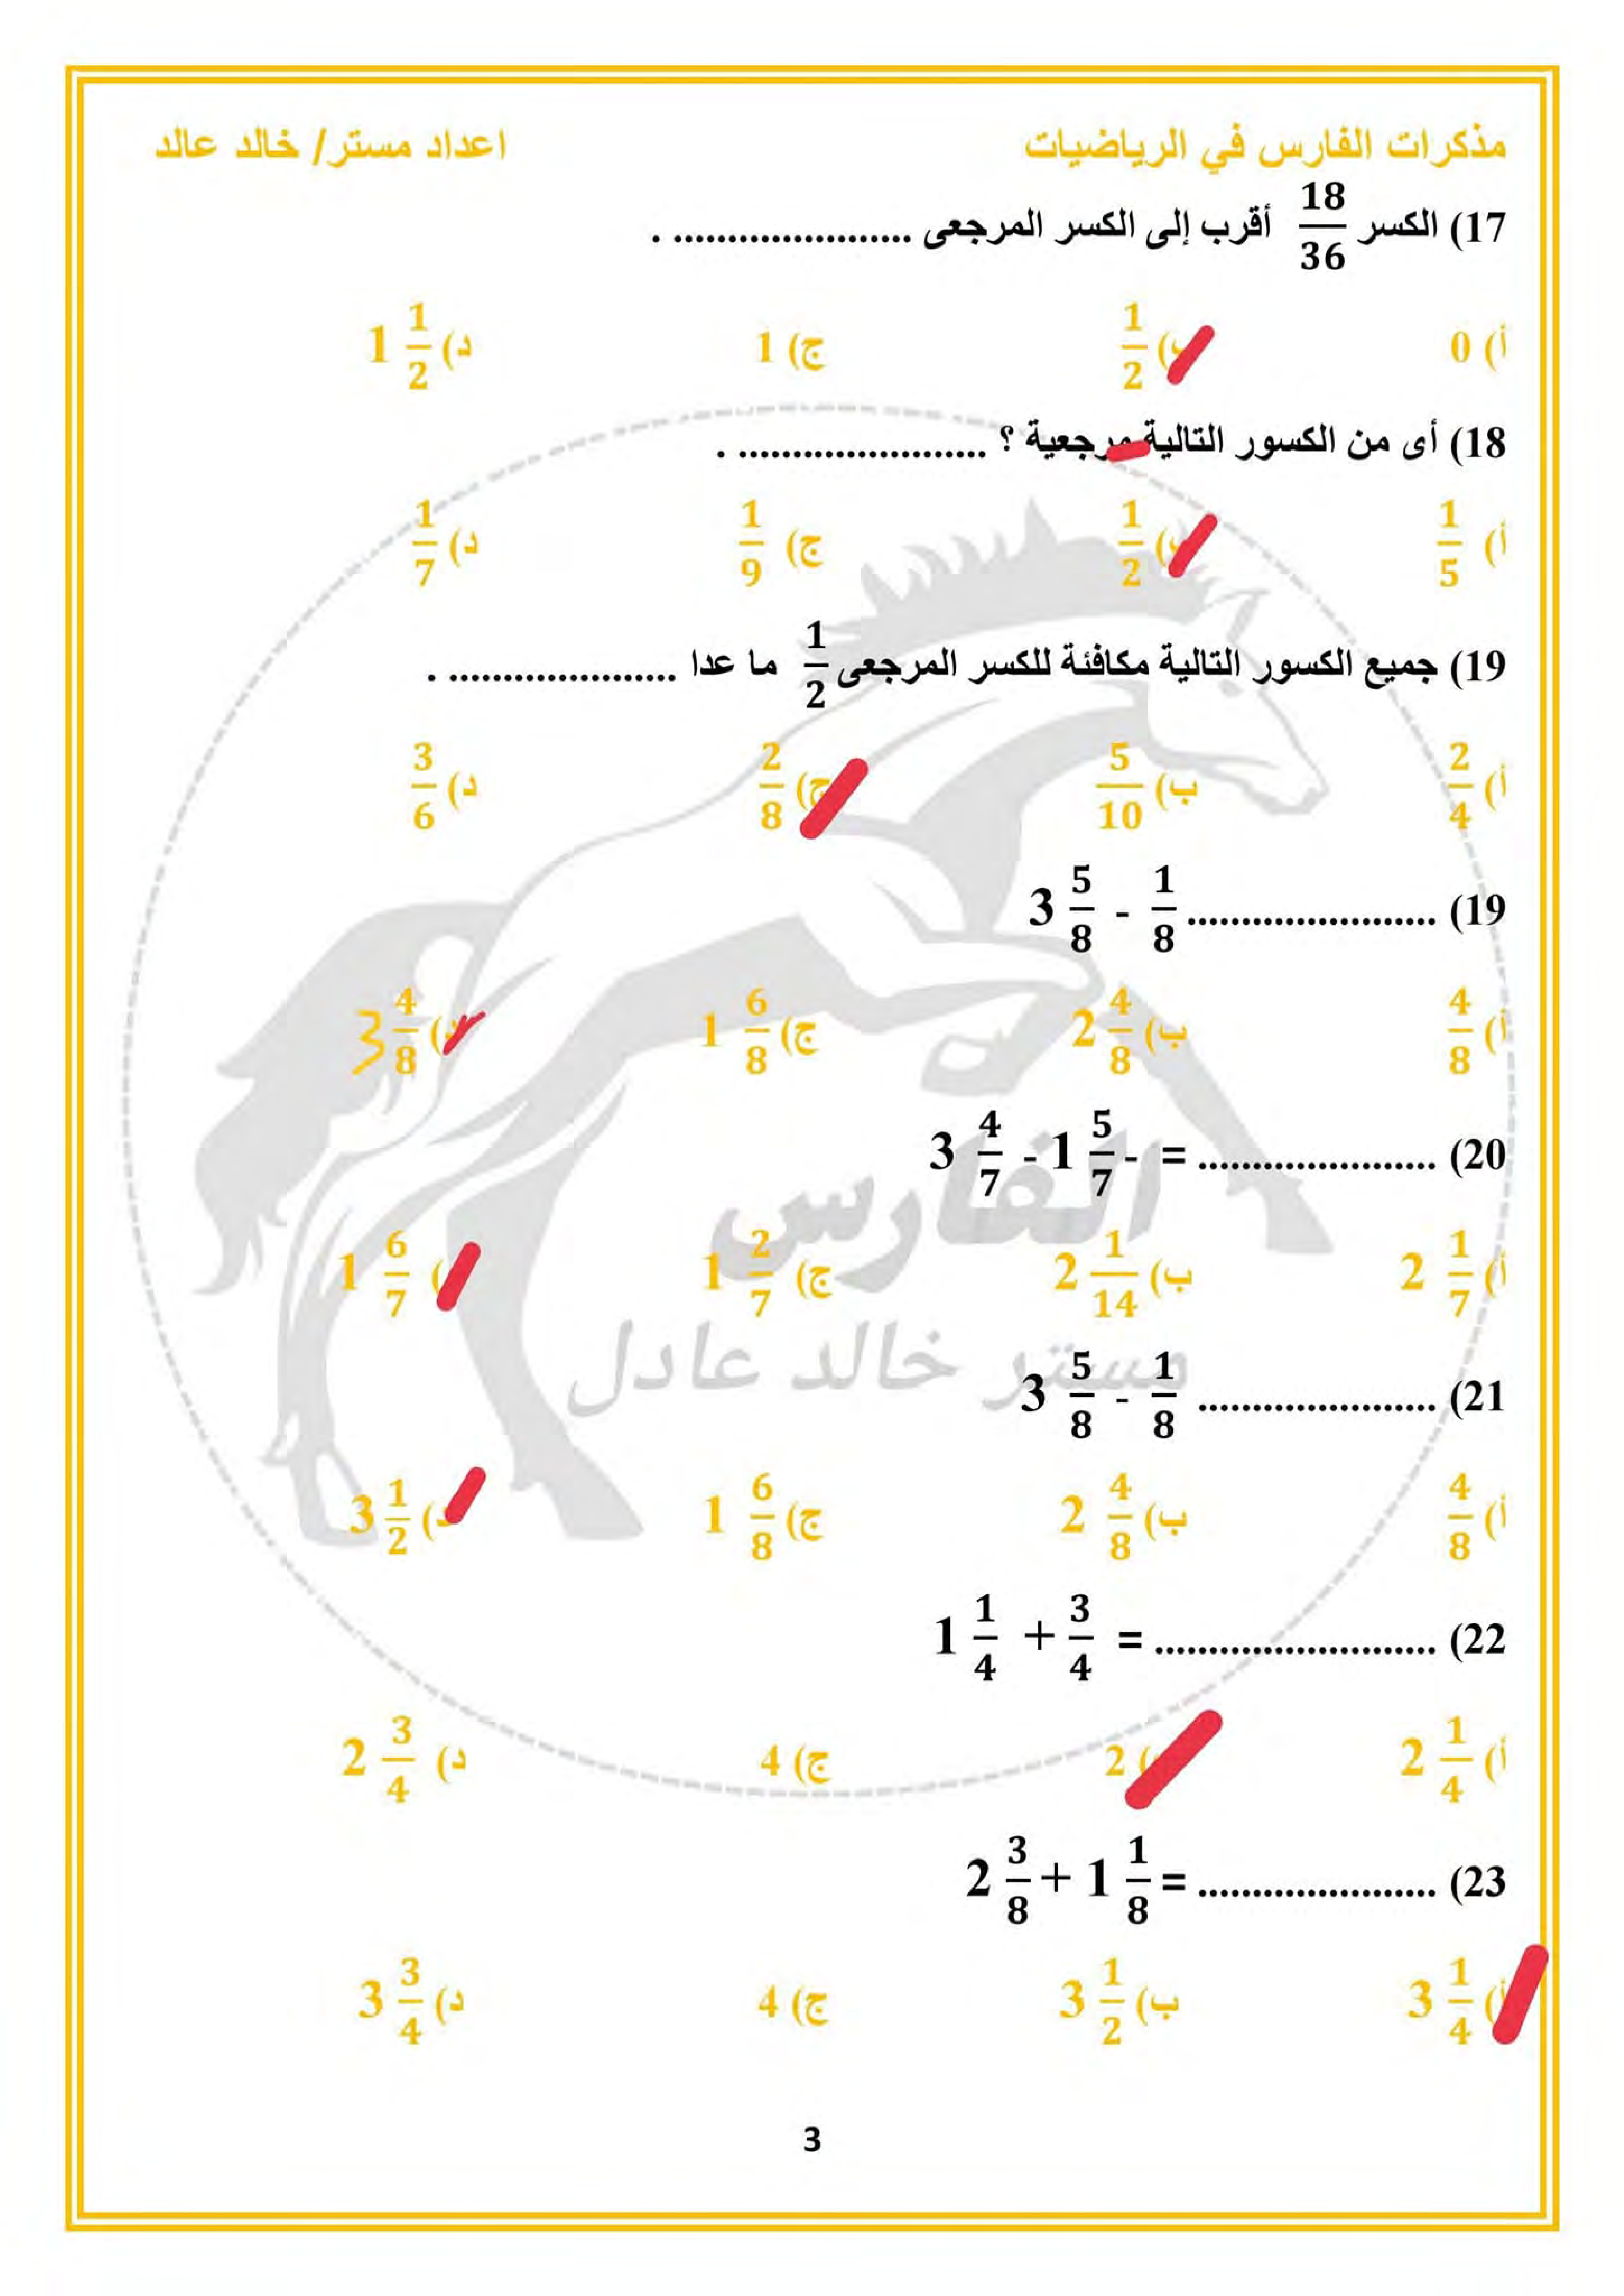 مذكرات الفارس في الرياضيات اعداد مستر/ خالد عالد
17) الكسر 18/36 أقرب إلى الكسر المرجعى ...................... .
أ) 0 ب) 1/2 ج) 1 د) 1 1/2
18) أى من الكسور التالية مرجعية ؟ ....................... .
أ) 1/5 ب) 1/2 ج) 1/9 د) 1/7
19) جميع الكسور التالية مكافئة للكسر المرجعى 1/2 ما عدا ..................... .
أ) 2/4 ب) 5/10 ج) 2/8 د) 3/6
19) 3 5/8 - 1/8 .......................
أ) 4/8 ب) 2 4/8 ج) 1 6/8 د) 3 4/8
20) 3 4/7 - 1 5/7 - = ......................
أ) 2 1/7 ب) 2 1/14 ج) 1 2/7 ) 1 6/7
الفارس
21) 3 5/8 - 1/8 ......................
مستر خالد عادل
أ) 4/8 ب) 2 4/8 ج) 1 6/8 د) 3 1/2
22) 1 1/4 + 3/4 = ..........................
أ) 2 1/4 ) 2 ج) 4 د) 2 3/4
23) 2 3/8 + 1 1/8 = ......................
أ) 3 1/4 ب) 3 1/2 ج) 4 د) 3 3/4
3